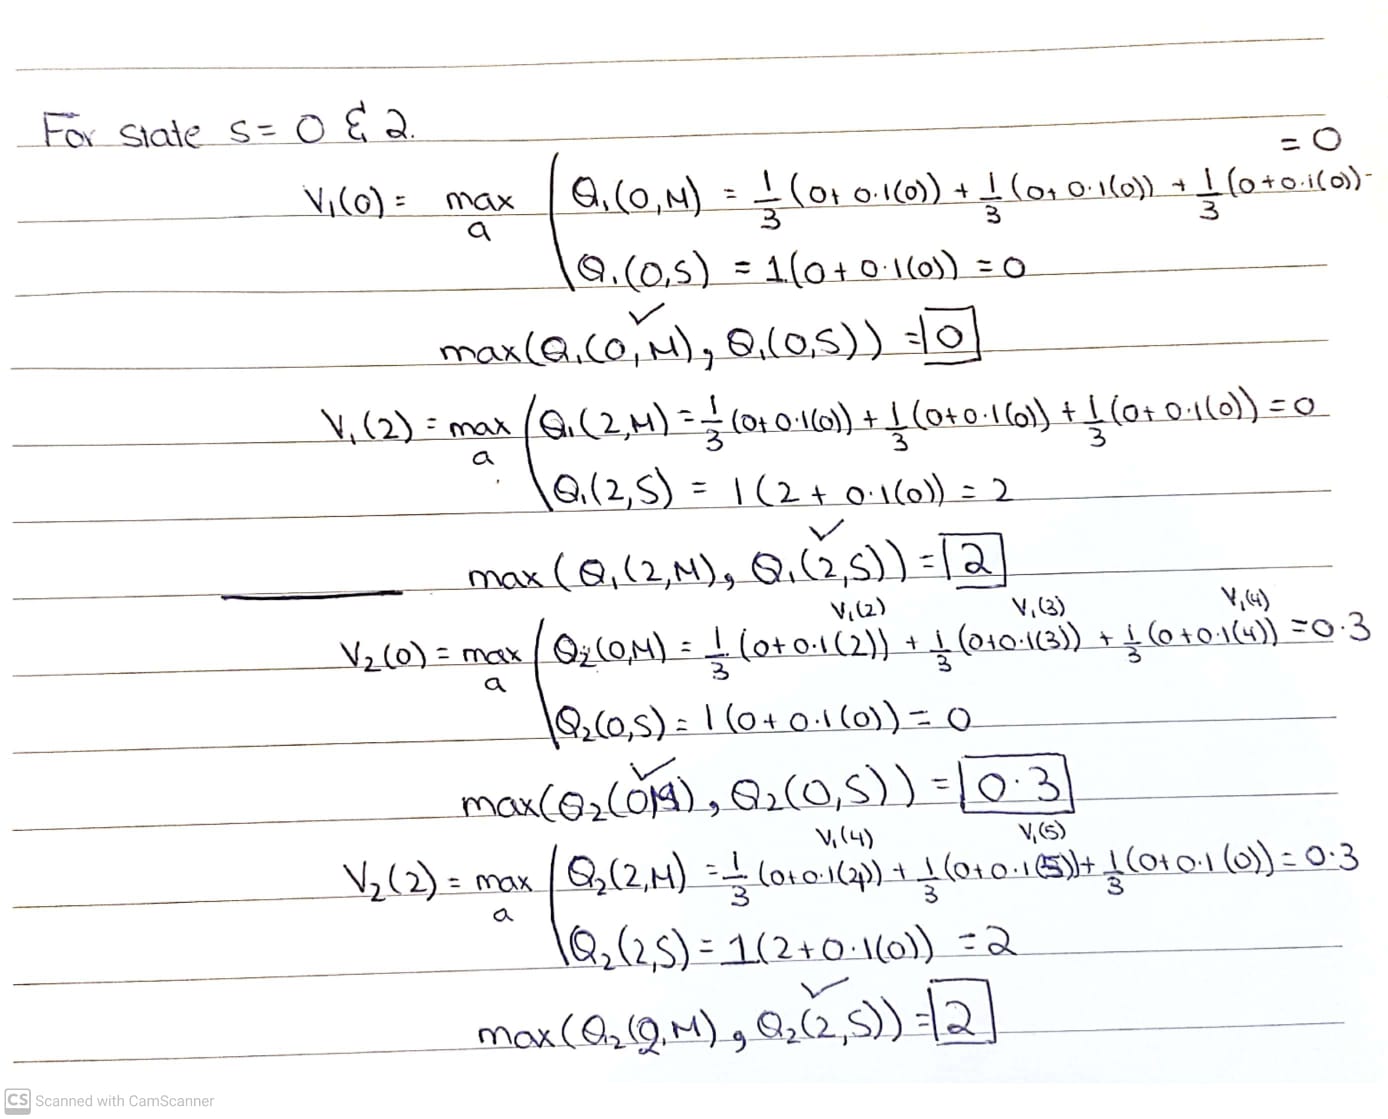 For state s = 0 & 2.
= 0
V₁(0) = max a Q₁(0,M) = 1/3 (0+ 0.1(0)) + 1/3 (0+ 0.1(0)) + 1/3 (0+0.1(0))
Q₁(0,S) = 1(0+ 0.1(0)) = 0
✓
max(Q₁(0,M), Q₁(0,S)) = 0
V₁(2) = max a Q₁(2,M) = 1/3 (0+ 0.1(0)) + 1/3 (0+0.1(0)) + 1/3 (0+ 0.1(0)) = 0
Q₁(2,S) = 1(2+ 0.1(0)) = 2
✓
max(Q₁(2,M), Q₁(2,S)) = 2
V₁(2) V₁(3) V₁(4)
V₂(0) = max a Q₂(0,M) = 1/3 (0+0.1(2)) + 1/3 (0+0.1(3)) + 1/3 (0+0.1(4)) = 0.3
Q₂(0,S) = 1(0+ 0.1(0)) = 0
✓
max(Q₂(0,M), Q₂(0,S)) = 0.3
V₁(4) V₁(5)
V₂(2) = max a Q₂(2,M) = 1/3 (0+0.1(4)) + 1/3 (0+0.1(5)) + 1/3 (0+0.1(0)) = 0.3
Q₂(2,S) = 1(2+0.1(0)) = 2
✓
max(Q₂(2,M), Q₂(2,S)) = 2
CS Scanned with CamScanner